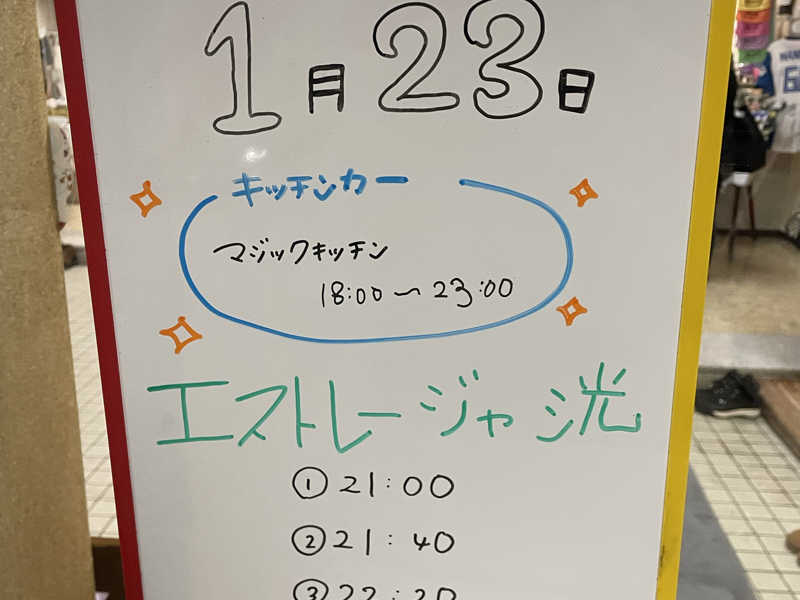 1月23日
キッチンカー
マジックキッチン
18:00〜23:00
エストレージャ洸
①21:00
②21:40
③22:20